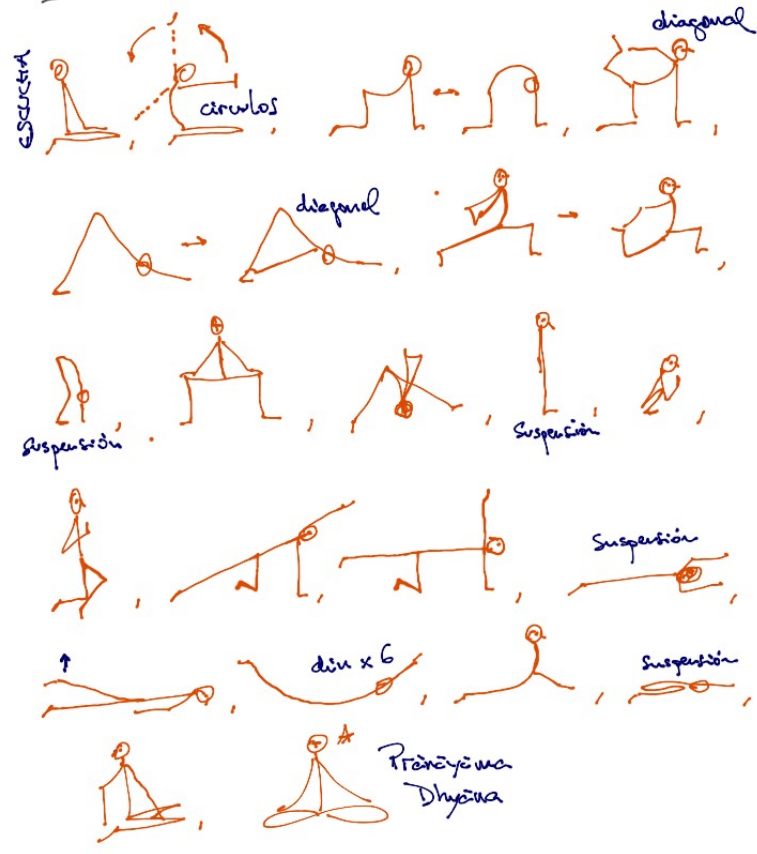 ESCUCHA
círculos
diagonal
diagonal
suspensión
suspensión
suspensión
din x 6
suspensión
Prānāyāma
Dhyāna